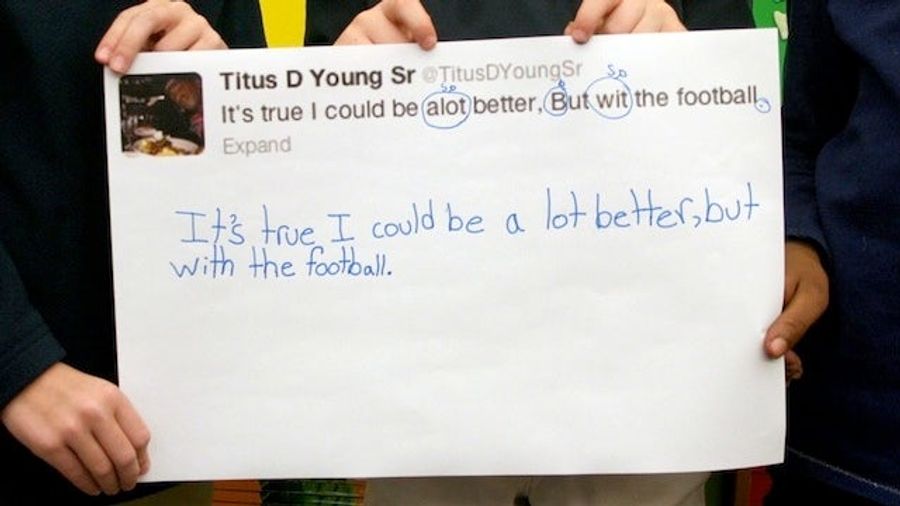 Titus D Young Sr @TitusDYoungSr
sp sp
It's true I could be alot better, But wit the football.
Expand
It's true I could be a lot better, but
with the football.